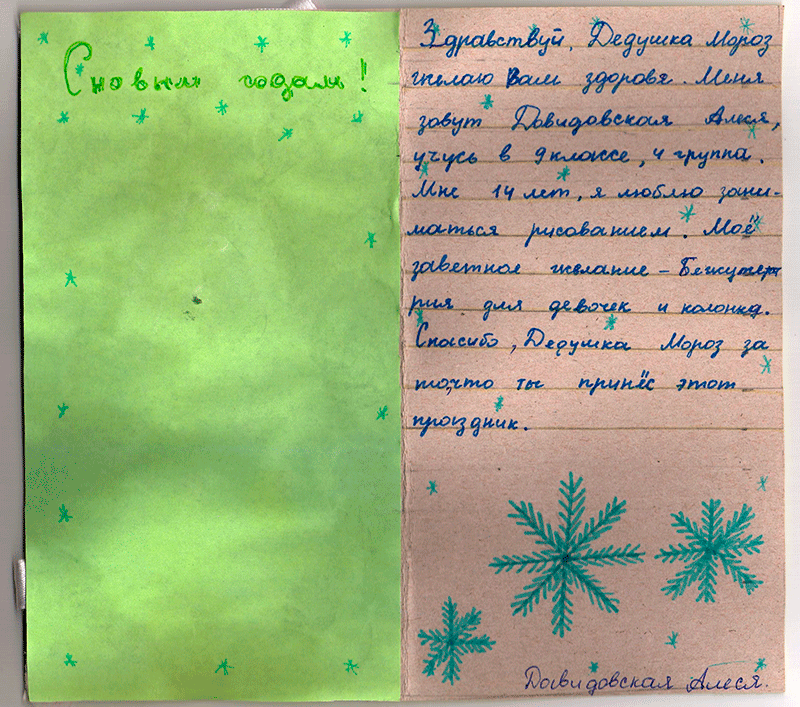 С новым годам!
Здравствуй, Дедушка Мороз
желаю Вам здоровя. Меня
зовут Давидовская Алеся,
учусь в 9 классе, 4 группа.
Мне 14 лет, я люблю зани-
маться рисованием. Моё
заветное желание – Бежутер
рия для девочек и колонка.
Спасибо, Дедушка Мороз за
то,что ты принёс этот
праздник.
Давидовская Алеся.